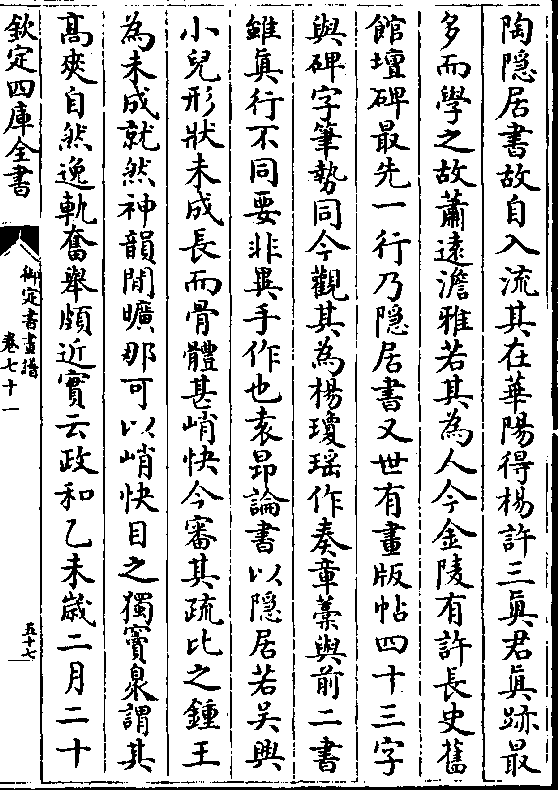 陶隠居書故自入流其在華陽得楊許三眞君眞跡最
多而學之故蕭逺澹雅若其為人今金陵有許長史舊
館壇碑最先一行乃隠居書又世有畫版帖四十三字
與碑字筆勢同今觀其為楊瓊瑶作奏章藁與前二書
雖眞行不同要非異手作也袁昻論書以隠居若吴興
小兒形狀未成長而骨體甚峭快今審其疏比之鍾王
為未成就然神韻閒曠那可以峭快目之獨竇臮謂其
髙爽自然逸軌奮舉頗近實云政和乙未嵗二月二十
欽定四庫全書
御定書畫譜
卷七十一
五十七